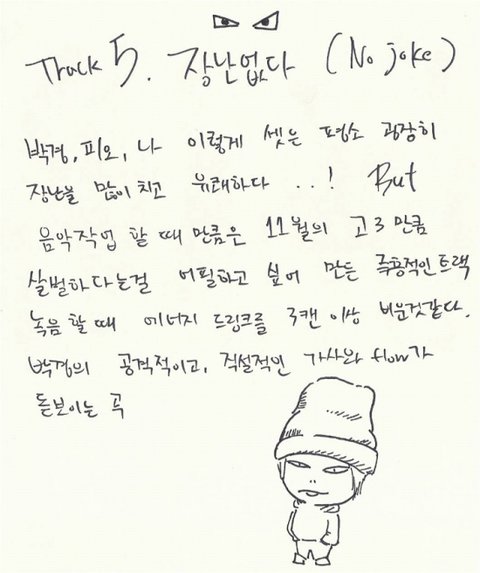 Track 5. 장난없다 (No joke)
박경, 피오, 나 이렇게 셋은 평소 굉장히
장난을 많이 치고 유쾌하다 . . ! But
음악작업 할 때 만큼은 11월의 고3 만큼
살벌하다는걸 어필하고 싶어 만든 즉흥적인 트랙
녹음 할 때 에너지 드링크를 3캔 이상 비운것같다.
박경의 공격적이고, 직설적인 가사와 flow가
돋보이는 곡